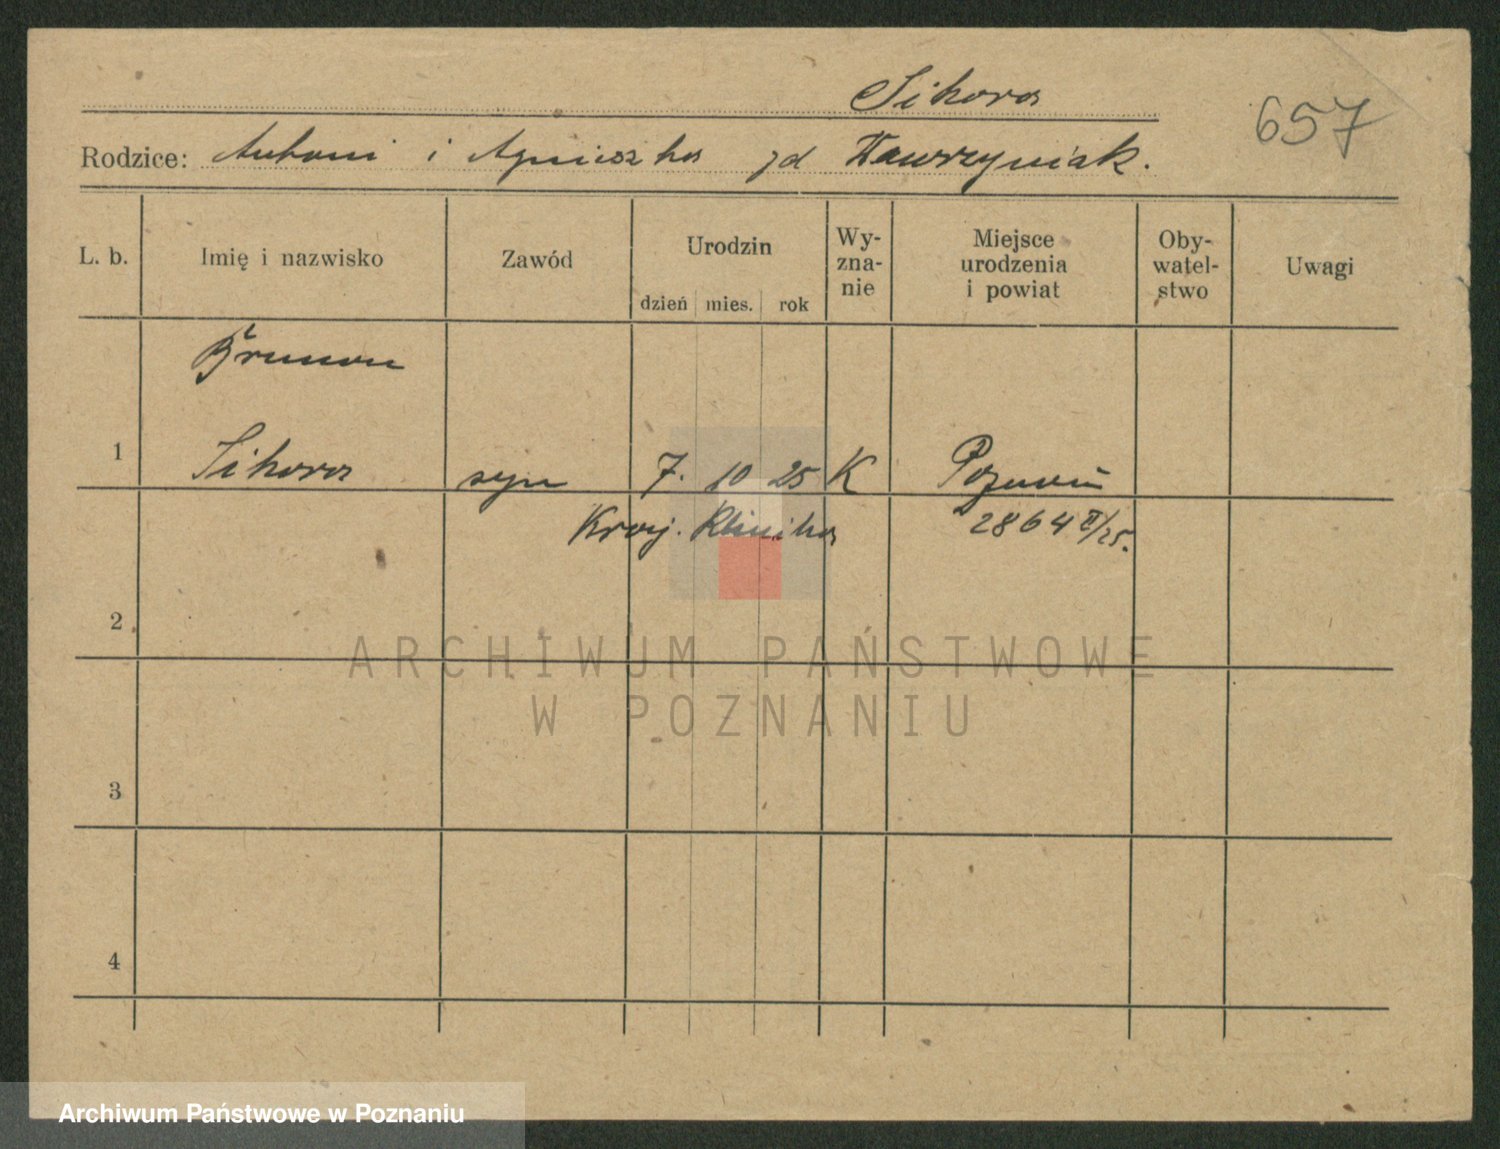 Sikora
657
Rodzice: Antoni i Agnieszka zd Wawrzyniak.
L. b. Imię i nazwisko Zawód Urodzin dzień mies. rok Wy-zna-nie Miejsce urodzenia i powiat Oby-watel-stwo Uwagi
Brunon
1 Sikora syn 7. 10 25 K Poznań
Kraj. Klinika 2864 II/25.
2
ARCHIWUM PAŃSTWOWE
W POZNANIU
3
4
Archiwum Państwowe w Poznaniu